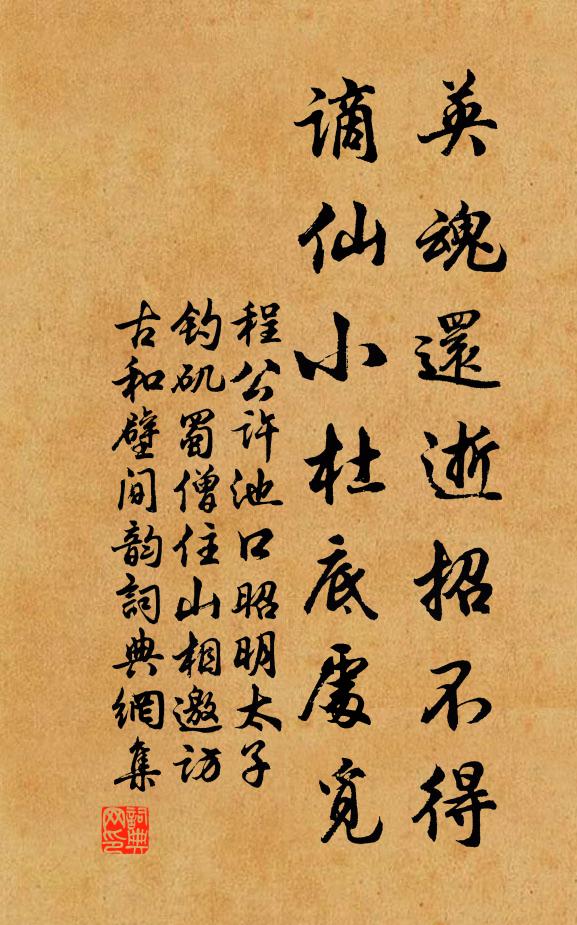 英魂還逝招不得
谪仙小杜底處覓
程公许池口昭明太子
钓矶蜀僧住山相邀访
古和壁间韵詞典網集
詞典
网印